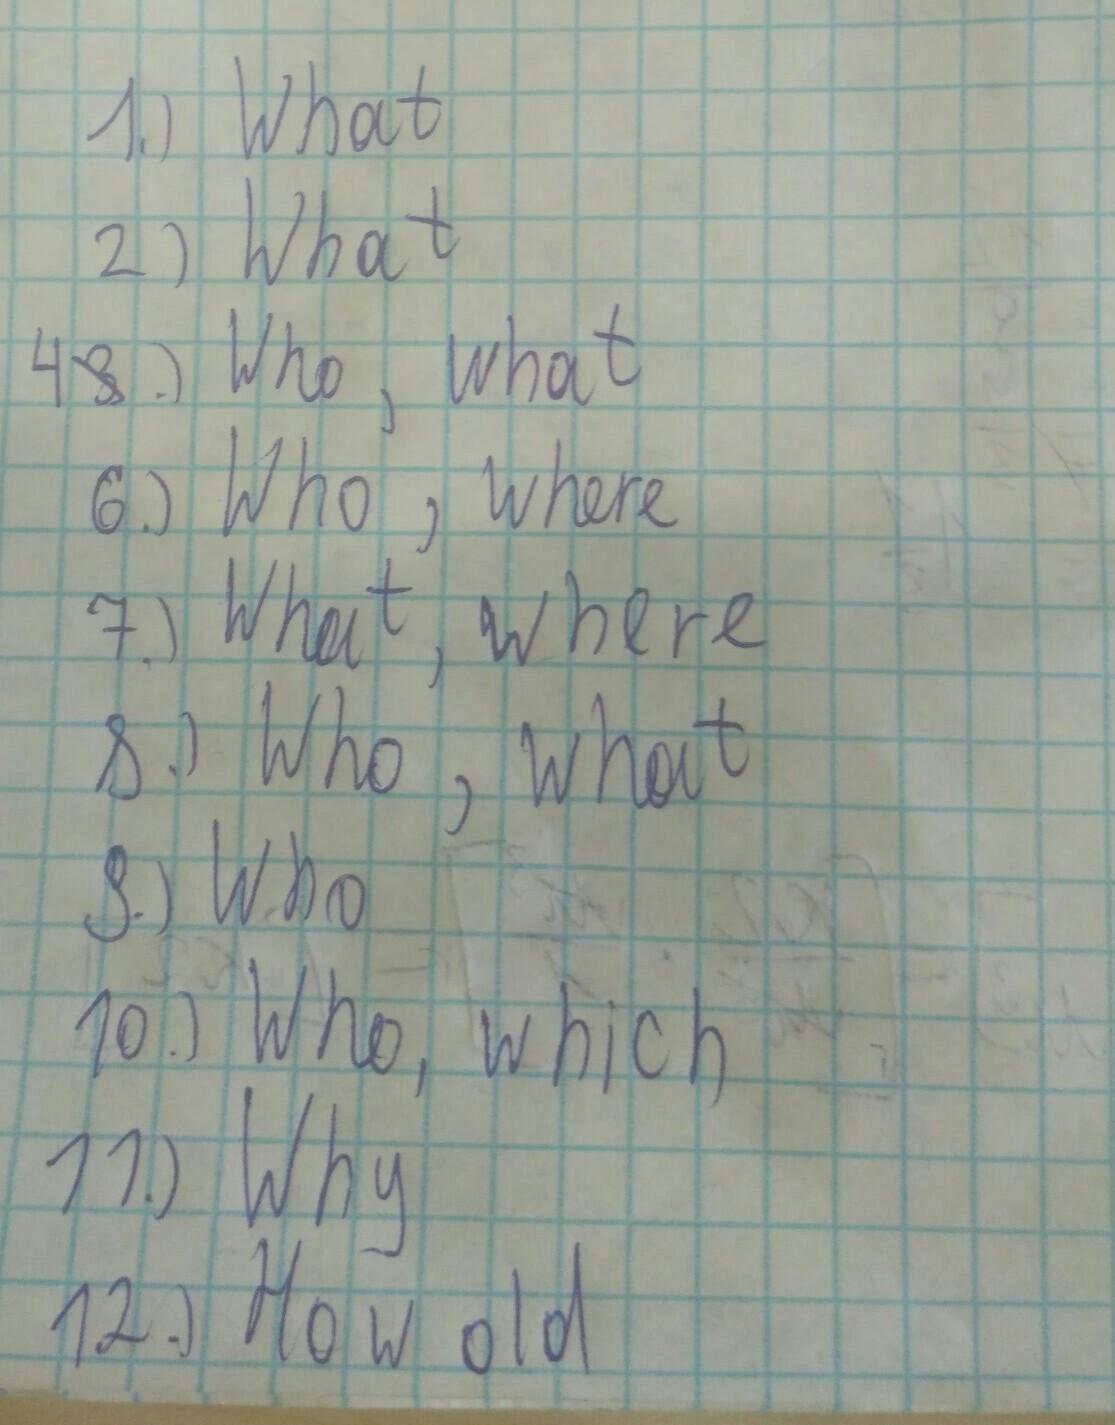 1.) What
2) What
48.) Who, what
6.) Who, where
7.) What, where
8.) Who, what
9.) Who
10.) Who, which
11.) Why
12.) How old